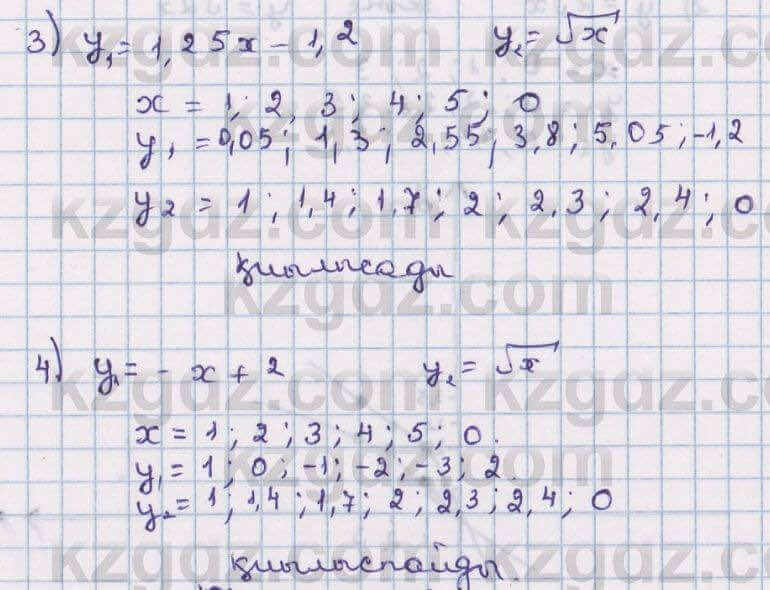 3) y₁ = 1,25x - 1,2 y₂ = √x
x = 1; 2, 3; 4; 5; 0
y₁ = 0,05; 1,3; 2,55; 3,8; 5,05; -1,2
y₂ = 1; 1,4; 1,7; 2; 2,3; 2,4; 0
қиылысады
4) y₁ = - x + 2 y₂ = √x
x = 1; 2; 3; 4; 5; 0.
y₁ = 1; 0; -1; -2; -3; 2.
y₂ = 1; 1,4; 1,7; 2; 2,3; 2,4; 0
қиылыспайды.
kzgdz.com